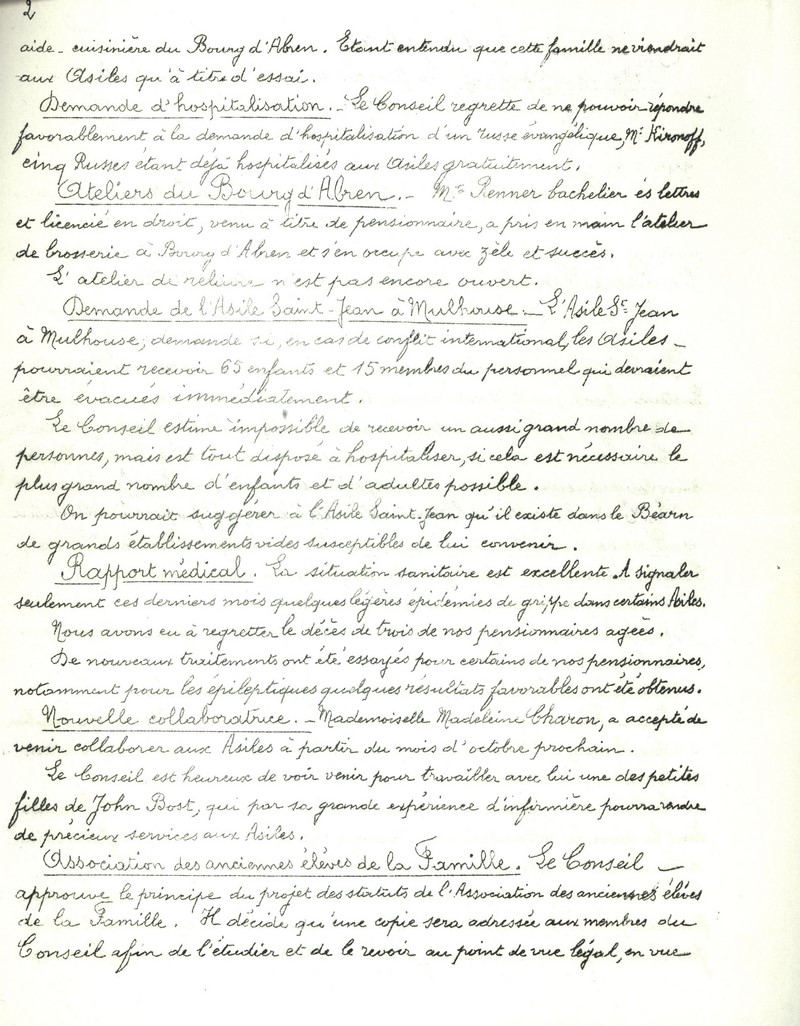 2
aide-cuisinière du Bourg d'Abren. Etant entendu que cette famille ne viendrait
aux Asiles qu'à titre d'essai.
Demande d'hospitalisation. - Le Conseil regrette de ne pouvoir répondre
favorablement à la demande d'hospitalisation d'un russe évangélique, Mr Kironoff,
cinq Russes étant déjà hospitalisés aux Asiles gratuitement.
Ateliers du Bourg d'Abren. - Penner bachelier és lettres
et licencié en droit, venu à titre de pensionnaire, a pris en main l'atelier
de brosserie à Bourg d'Abren et s'en occupe avec zèle et succès.
L'atelier de reliure n'est pas encore ouvert.
Demande de l'Asile Saint-Jean à Mulhouse - L'Asile St Jean
à Mulhouse, demande si, en cas de conflit international, les Asiles -
pourraient recevoir 65 enfants et 15 membres du personnel qui devraient
être évacués immédiatement.
Le Conseil estime impossible de recevoir un aussi grand nombre de
personnes, mais est tout disposé à hospitaliser, si cela est nécessaire le
plus grand nombre d'enfants et d'adultes possible.
On pourrait suggérer à l'Asile Saint-Jean qu'il existe dans le Béarn
de grands établissements vides susceptibles de lui convenir.
Rapport médical. La situation sanitaire est excellente. A signaler
seulement ces derniers mois quelques légères épidémies de grippe dans certains Asiles.
Nous avons eu à regretter le décès de trois de nos pensionnaires agées.
De nouveaux traitements ont été essayés pour certains de nos pensionnaires,
notamment pour les épileptiques quelques résultats favorables ont été obtenus.
Nouvelle collaboratrice. - Mademoiselle Madeleine Charon, a accepté de
venir collaborer aux Asiles à partir du mois d'octobre prochain.
Le Conseil est heureux de voir venir pour travailler avec lui une des petites
filles de John Bost, qui par sa grande expérience d'infirmière pourra rendre
de précieux services aux Asiles.
Association des anciennes élèves de la Famille. Le Conseil -
approuve le principe du projet des statuts de l'Association des anciennes élèves
de la Famille. Il décide qu'une copie sera adressée aux membres du
Conseil afin de l'étudier et de le revoir au point de vue légal, en vue